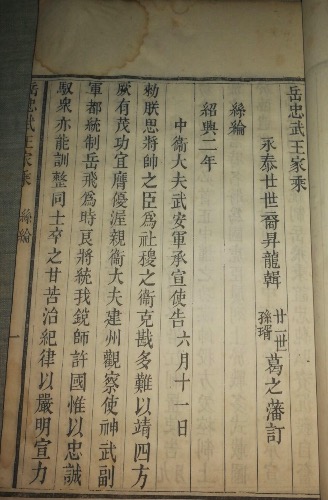 岳忠武王家乘
永泰廿世裔昇龍輯 廿一世孫壻葛之藩訂
絲綸
紹興二年
中衛大夫武安軍承宣使告六月十一日
勑朕思將帥之臣爲社稷之衞克戡多難以靖四方
厥有茂功宜膺優渥親衞大夫建州觀察使神武副
軍都統制岳飛爲時良將統我銳師許國惟以忠誠
馭衆亦能訓整同士卒之甘苦治紀律以嚴明宣力
岳忠武王家乘 絲綸 一